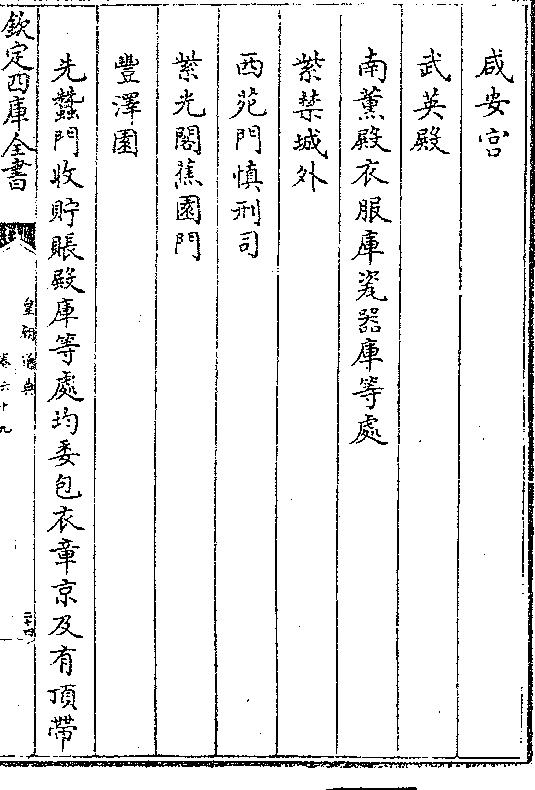 咸安宫
武英殿
南薰殿衣服庫瓷器庫等處
紫禁城外
西苑門慎刑司
紫光閣蕉園門
豐澤園
先蠶門收貯賬殿庫等處均委包衣章京及有頂帶
欽定四庫全書
皇朝通典
卷六十九
二十四